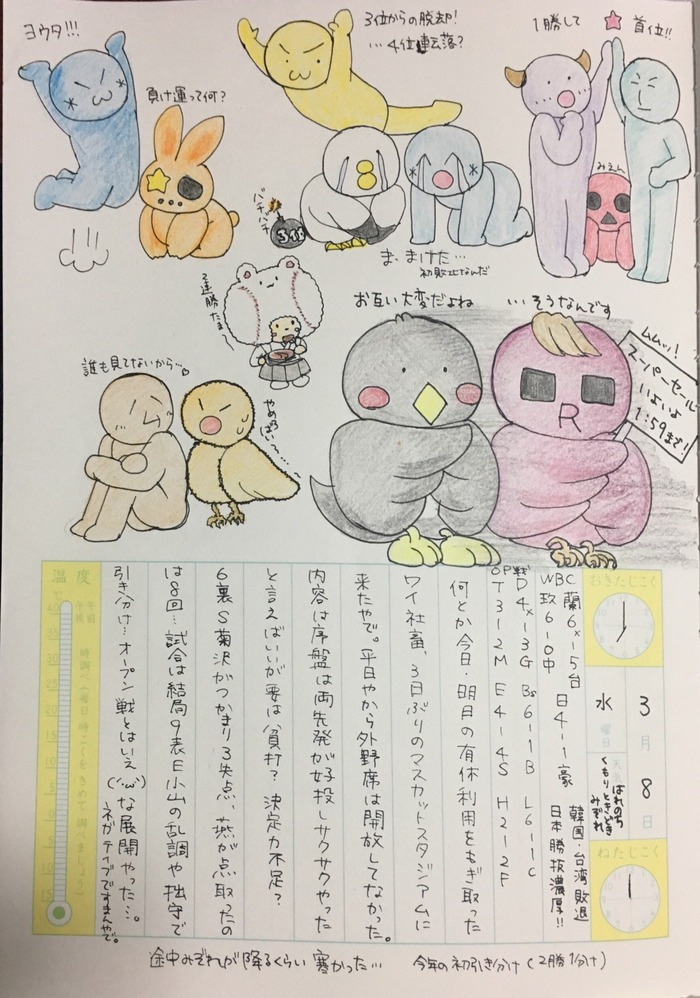 ヨウタ!!!
負け運って何?
3位からの脱却!
…4位転落?
1勝して
首位!!
みえん
バチバチ
ま、まけた…
初敗北なんだ
2連勝たまー
お互い大変だよね
…そうなんです
ムムッ!
スーパーセール
いよいよ
1:59まで!
R
誰も見てないから…
やめろ
おきたじこく
3月8日
水曜日
天気
はれのち
くもりときどき
みぞれ
ねたじこく
WBC 蘭6×-5台 日4-1豪 韓国・台湾敗退
玖6-0中 日本勝抜濃厚!!
OP戦
D4×-3G Bs6-1B L6-1C
T3-2M E4-4S H2-2F
何とか今日・明日の有休利用をもぎ取った
ワイ社畜、3日ぶりのマスカットスタジアムに
来たやで。平日やから外野席は開放してなかった。
内容は序盤は両先発が好投しサクサクやった
と言えばいいが要は貧打?決定力不足?
6裏S菊沢がつかまり3失点、燕が点取ったの
は8回…試合は結局9表E小山の乱調や拙守で
引き分け…オープン戦とはいえ(´・ω・`)な展開やった…。
ネガティブですまんやで。
温度
℃
午前
午後
時調べ(毎日時こくをきめて調べましょう)
40
35
30
25
20
15
10
5
0
5
10
15
途中みぞれが降るくらい寒かった…
今年の初引き分け(2勝1分け)